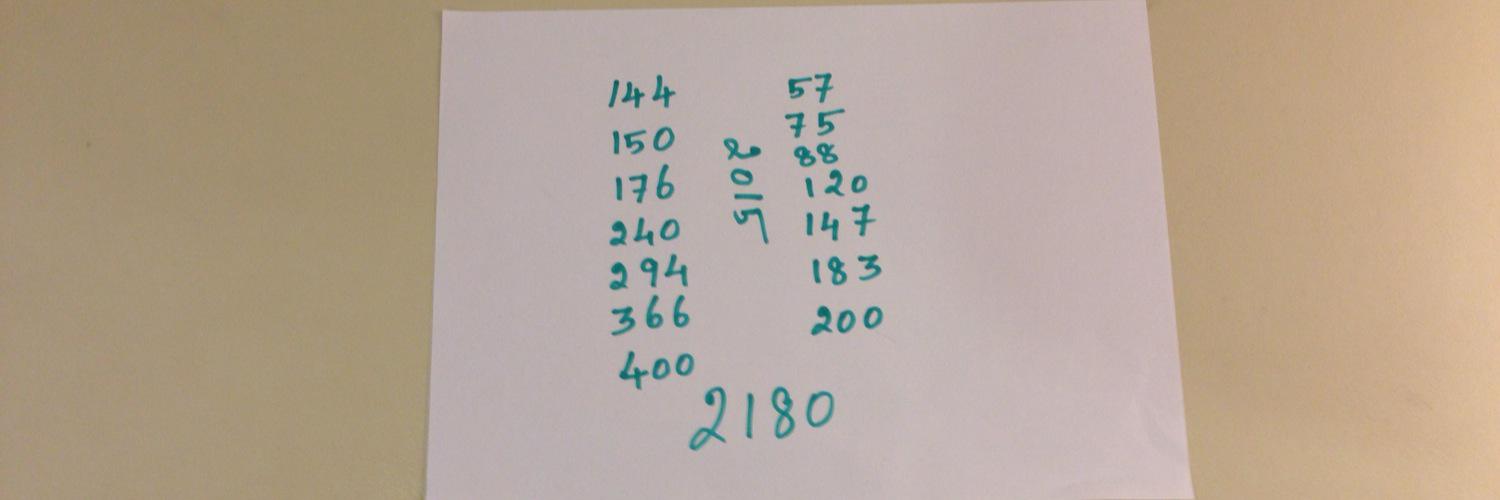 144
150
176
240
294
366
400
2015
57
75
88
120
147
183
200
2180